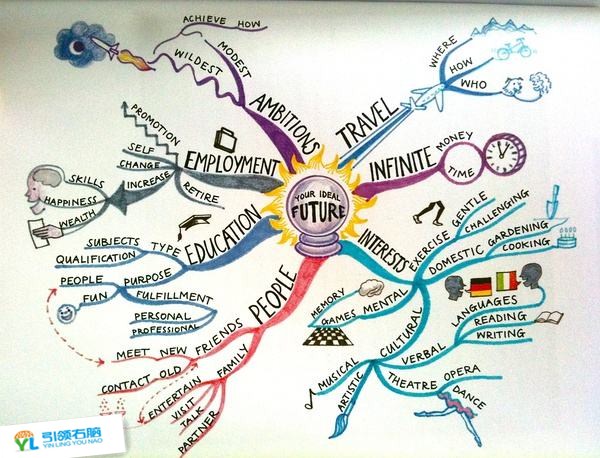 YOUR IDEAL
FUTURE
TRAVEL
WHERE
HOW
WHO
INFINITE
MONEY
TIME
INTERESTS
EXERCISE
GENTLE
CHALLENGING
DOMESTIC
GARDENING
COOKING
MENTAL
MEMORY
GAMES
CULTURAL
VERBAL
LANGUAGES
READING
WRITING
ARTISTIC
MUSICAL
THEATRE
OPERA
DANCE
PEOPLE
FRIENDS
NEW
MEET
OLD
CONTACT
FAMILY
ENTERTAIN
VISIT
TALK
PARTNER
EDUCATION
TYPE
SUBJECTS
QUALIFICATION
PURPOSE
PEOPLE
FUN
FULFILLMENT
PERSONAL
PROFESSIONAL
EMPLOYMENT
PROMOTION
SELF
CHANGE
INCREASE
SKILLS
HAPPINESS
WEALTH
RETIRE
AMBITIONS
MODEST
WILDEST
ACHIEVE HOW
YL
引领右脑
YIN LING YOU NAO